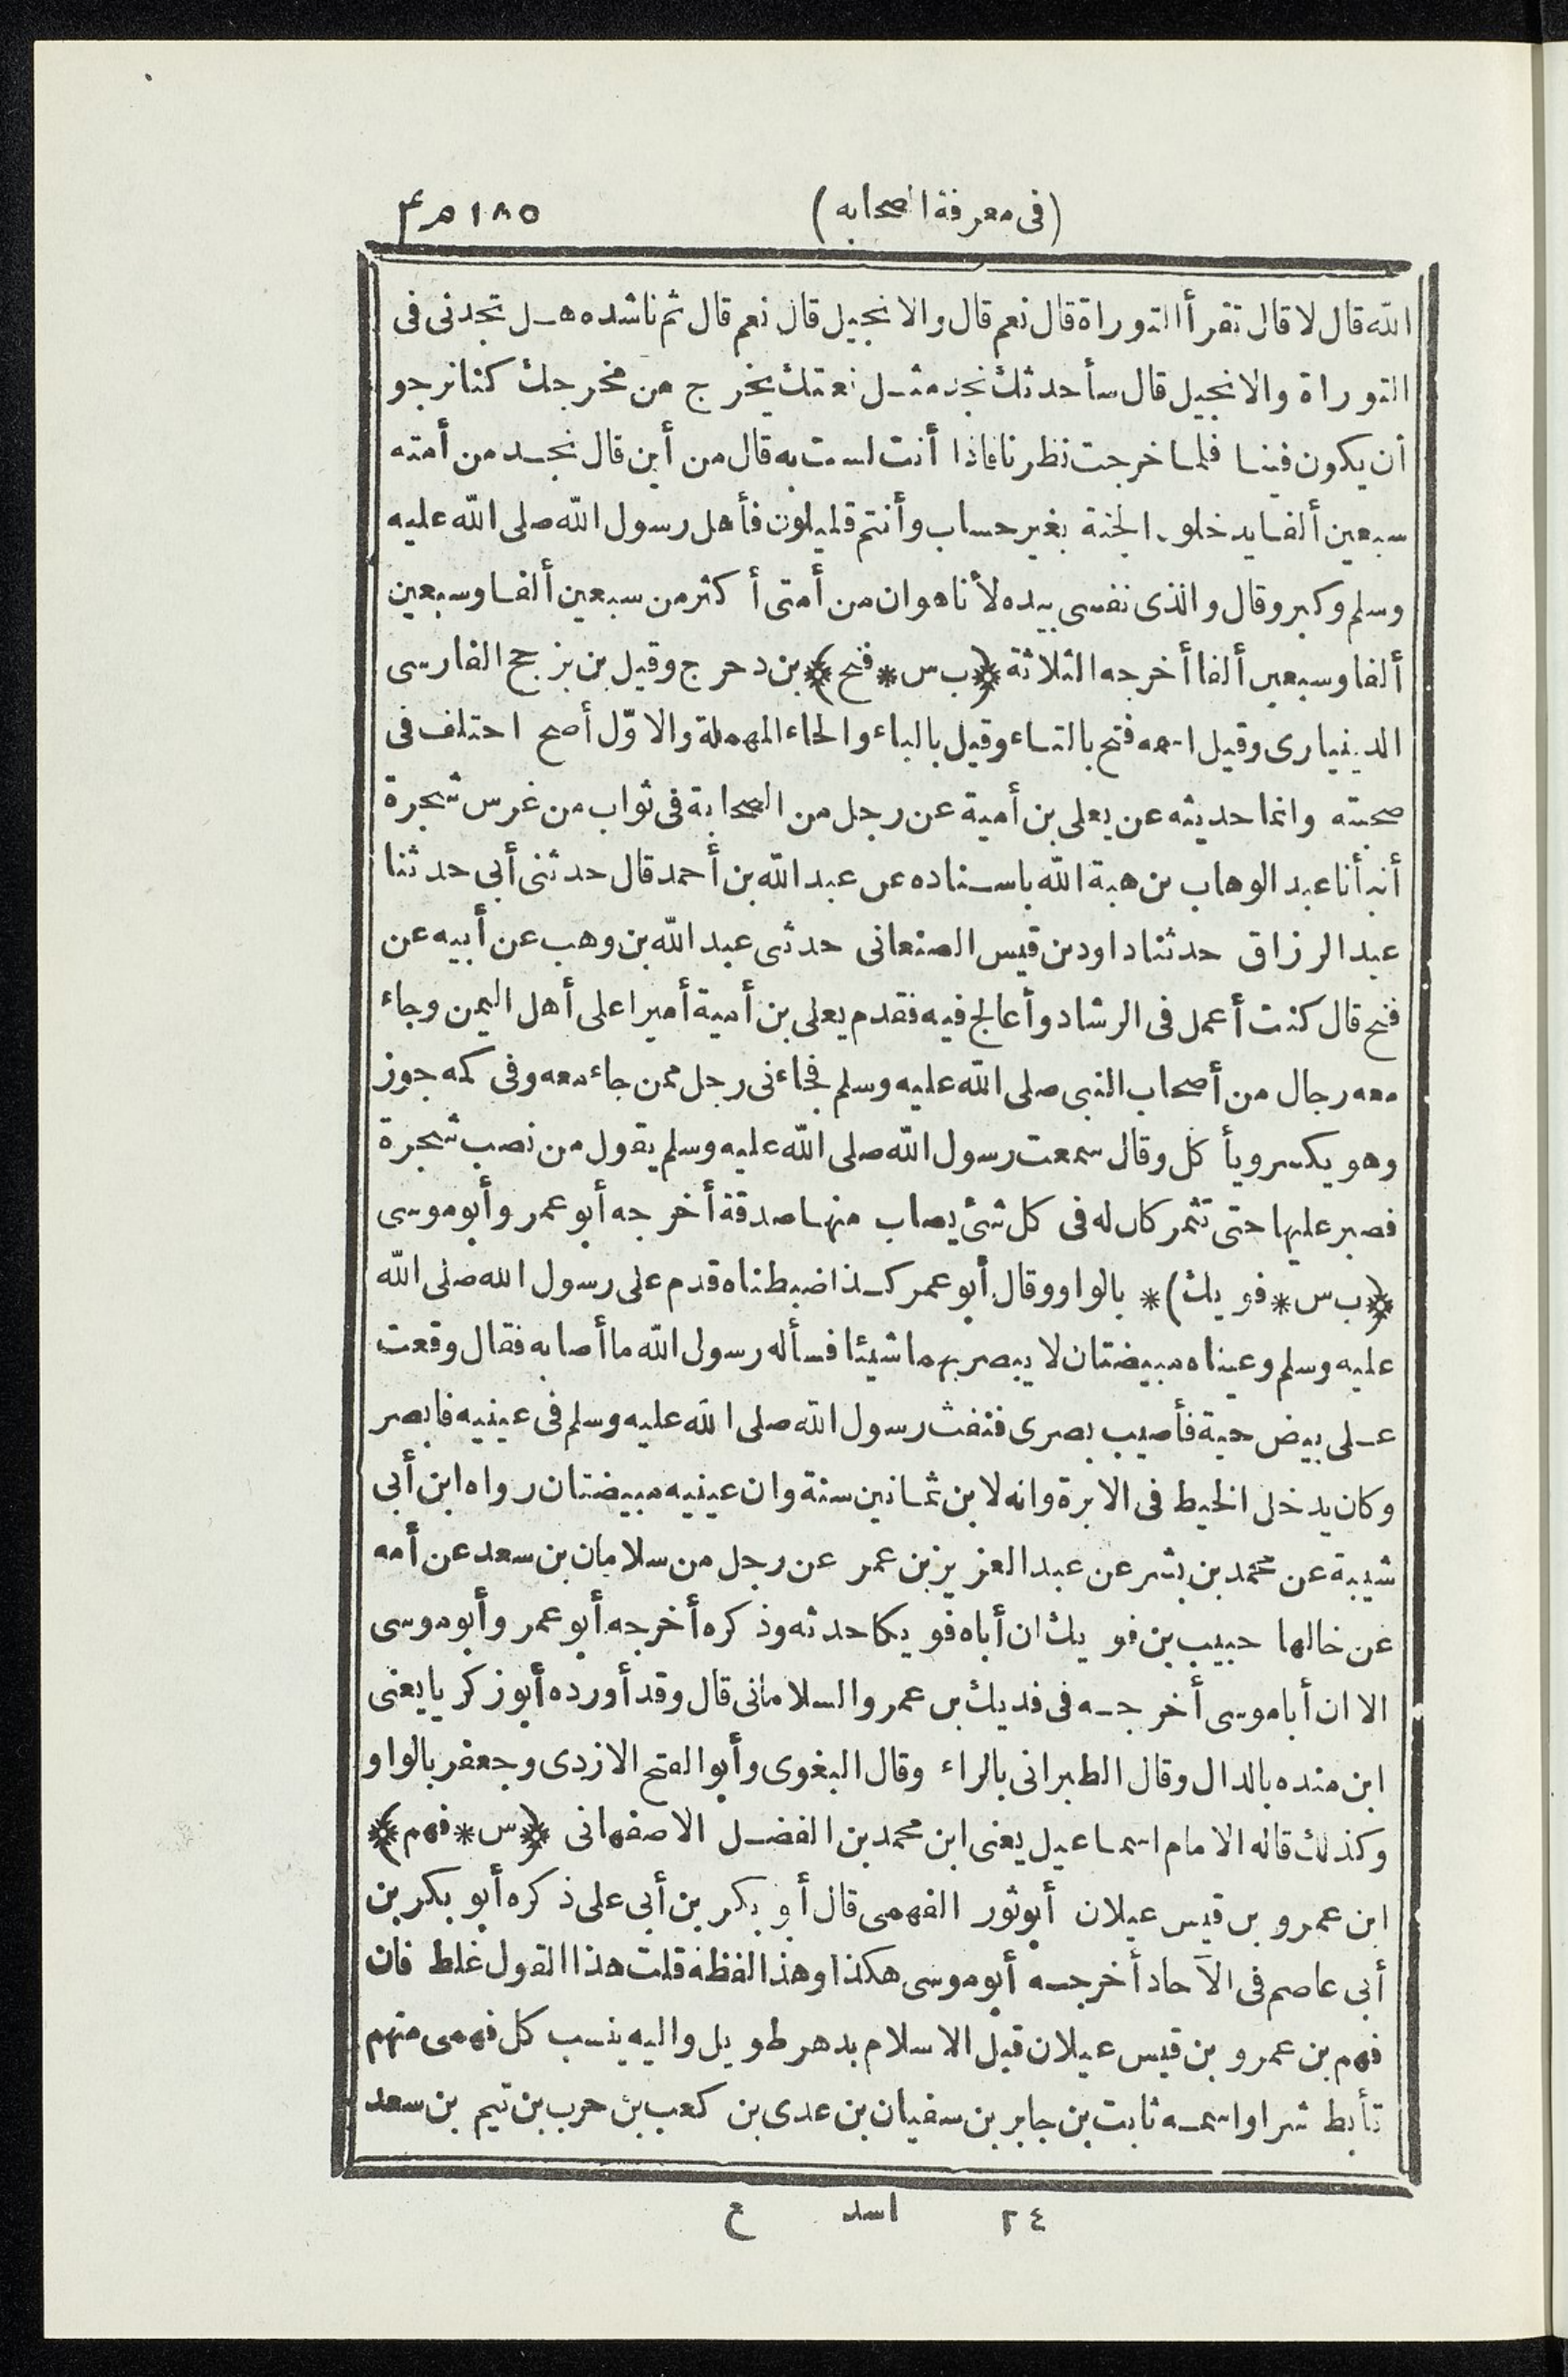 (فى معرفة الصحابه) ١٨٥
الله قال لا قال تقرأ التوراة قال نعم قال والانجيل قال نعم قال ثم ناشده هل تجدنى فى
التوراة والانجيل قال سأحدثك نجد مثل نعتك يخرج من مخرجك كنا نرجو
أن يكون فينا فلما خرجت نظرنا فاذا أنت لست به قال من أين قال نجد من أمته
سبعين ألفا يدخلون الجنة بغير حساب وأنتم قليلون فأهل رسول الله صلى الله عليه
وسلم وكبر وقال والذى نفسى بيده لأنا هو ان من أمتى أكثر من سبعين ألفا وسبعين
ألفا وسبعين ألفا أخرجه الثلاثة ﴿ب س * فنج﴾ بن دحرج وقيل بن بزجج الفارسى
الدينيارى وقيل اسمه فتح بالتاء وقيل بالباء والحاء المهملة والاوّل أصح اختلف فى
صحبته وانما حديثه عن يعلى بن أمية عن رجل من الصحابة فى ثواب من غرس شجرة
أنبأنا عبد الوهاب بن هبة الله باسناده عن عبد الله بن أحمد قال حدثنى أبى حدثنا
عبد الرزاق حدثنا داود بن قيس الصنعانى حدثنى عبد الله بن وهب عن أبيه عن
فنج قال كنت أعمل فى الرشاد وأعالج فيه فقدم يعلى بن أمية أميرا على أهل اليمن وجاء
معه رجال من أصحاب النبى صلى الله عليه وسلم فجاءنى رجل ممن جاء معه وفى كمه جوز
وهو يكسر ويأكل وقال سمعت رسول الله صلى الله عليه وسلم يقول من نصب شجرة
فصبر عليها حتى تثمر كان له فى كل شئ يصاب منها صدقة أخرجه أبو عمر وأبو موسى
﴿ب س * فويك) * بالواو وقال أبو عمر كذا ضبطناه قدم على رسول الله صلى الله
عليه وسلم وعيناه مبيضتان لا يبصر بهما شيئا فسأله رسول الله ما أصابه فقال وقعت
على بيض حية فأصيب بصرى فنفث رسول الله صلى الله عليه وسلم فى عينيه فابصر
وكان يدخل الخيط فى الابرة وانه لابن ثمانين سنة وان عينيه مبيضتان رواه ابن أبى
شيبة عن محمد بن بشر عن عبد العزيز بن عمر عن رجل من سلامان بن سعد عن أمه
عن خالها حبيب بن فويك ان أباه فويكا حدثه وذكره أخرجه أبو عمر وأبو موسى
الا ان أبا موسى أخرجه فى فديك بن عمرو السلامانى قال وقد أورده أبو زكريا يعنى
ابن منده بالدال وقال الطبرانى بالراء وقال البغوى وأبو الفتح الازدى وجعفر بالواو
وكذلك قاله الامام اسماعيل يعنى ابن محمد بن الفضل الاصفهانى ﴿س * فهم﴾
ابن عمرو بن قيس عيلان أبو ثور الفهمى قال أبو بكر بن أبى على ذكره أبو بكر بن
أبى عاصم فى الآحاد أخرجه أبو موسى هكذا وهذا لفظه قلت هذا القول غلط فان
فهم بن عمرو بن قيس عيلان قبل الاسلام بدهر طويل واليه ينسب كل فهمى منهم
تأبط شرا واسمه ثابت بن جابر بن سفيان بن عدى بن كعب بن حرب بن تيم بن سعد
٢٤ اسد ع